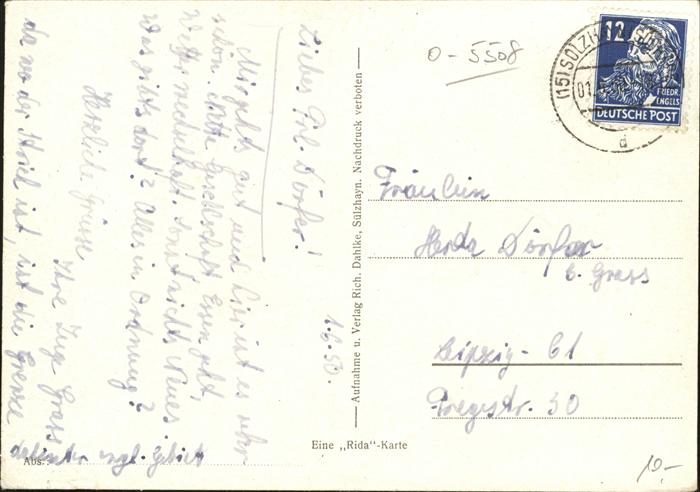 1.6.50.
Liebes Frl. Dörfer!
Mir geht's gut und hier ist es sehr
schön. Nette Gesellschaft. Essen geht,
Wetter wechselhaft. Sonst nichts Neues.
Was gibts dort? Alles in Ordnung?
Herzliche Grüsse
Ihre Inge Grass
da wo der Strich ist, ist die Grenze
dahinter engl. Gebiet
Abs.:
Aufnahme u. Verlag Rich. Dahlke, Sülzhayn. Nachdruck verboten
Eine „Rida"-Karte
0-5508
(15) SÜLZHAYN
01.
d
12
FRIEDR.
ENGELS
DEUTSCHE POST
Fräulein
Herta Dörfer
b. Grass
Leipzig - C1
30
10,-